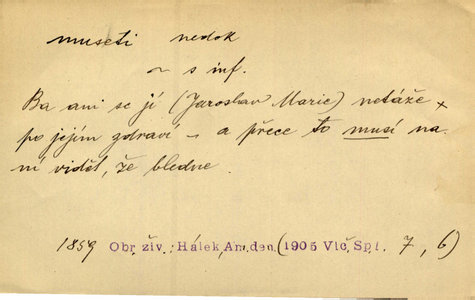 museti nedok
~ s inf.
Ba ani se jí (Jaroslav Marie) netáže
po jejím zdraví – a přece to musí na
ní vidět, že bledne.
1859 Obr. živ. Hálek An. den (1905 Vlč. Sp I. 7, 6)